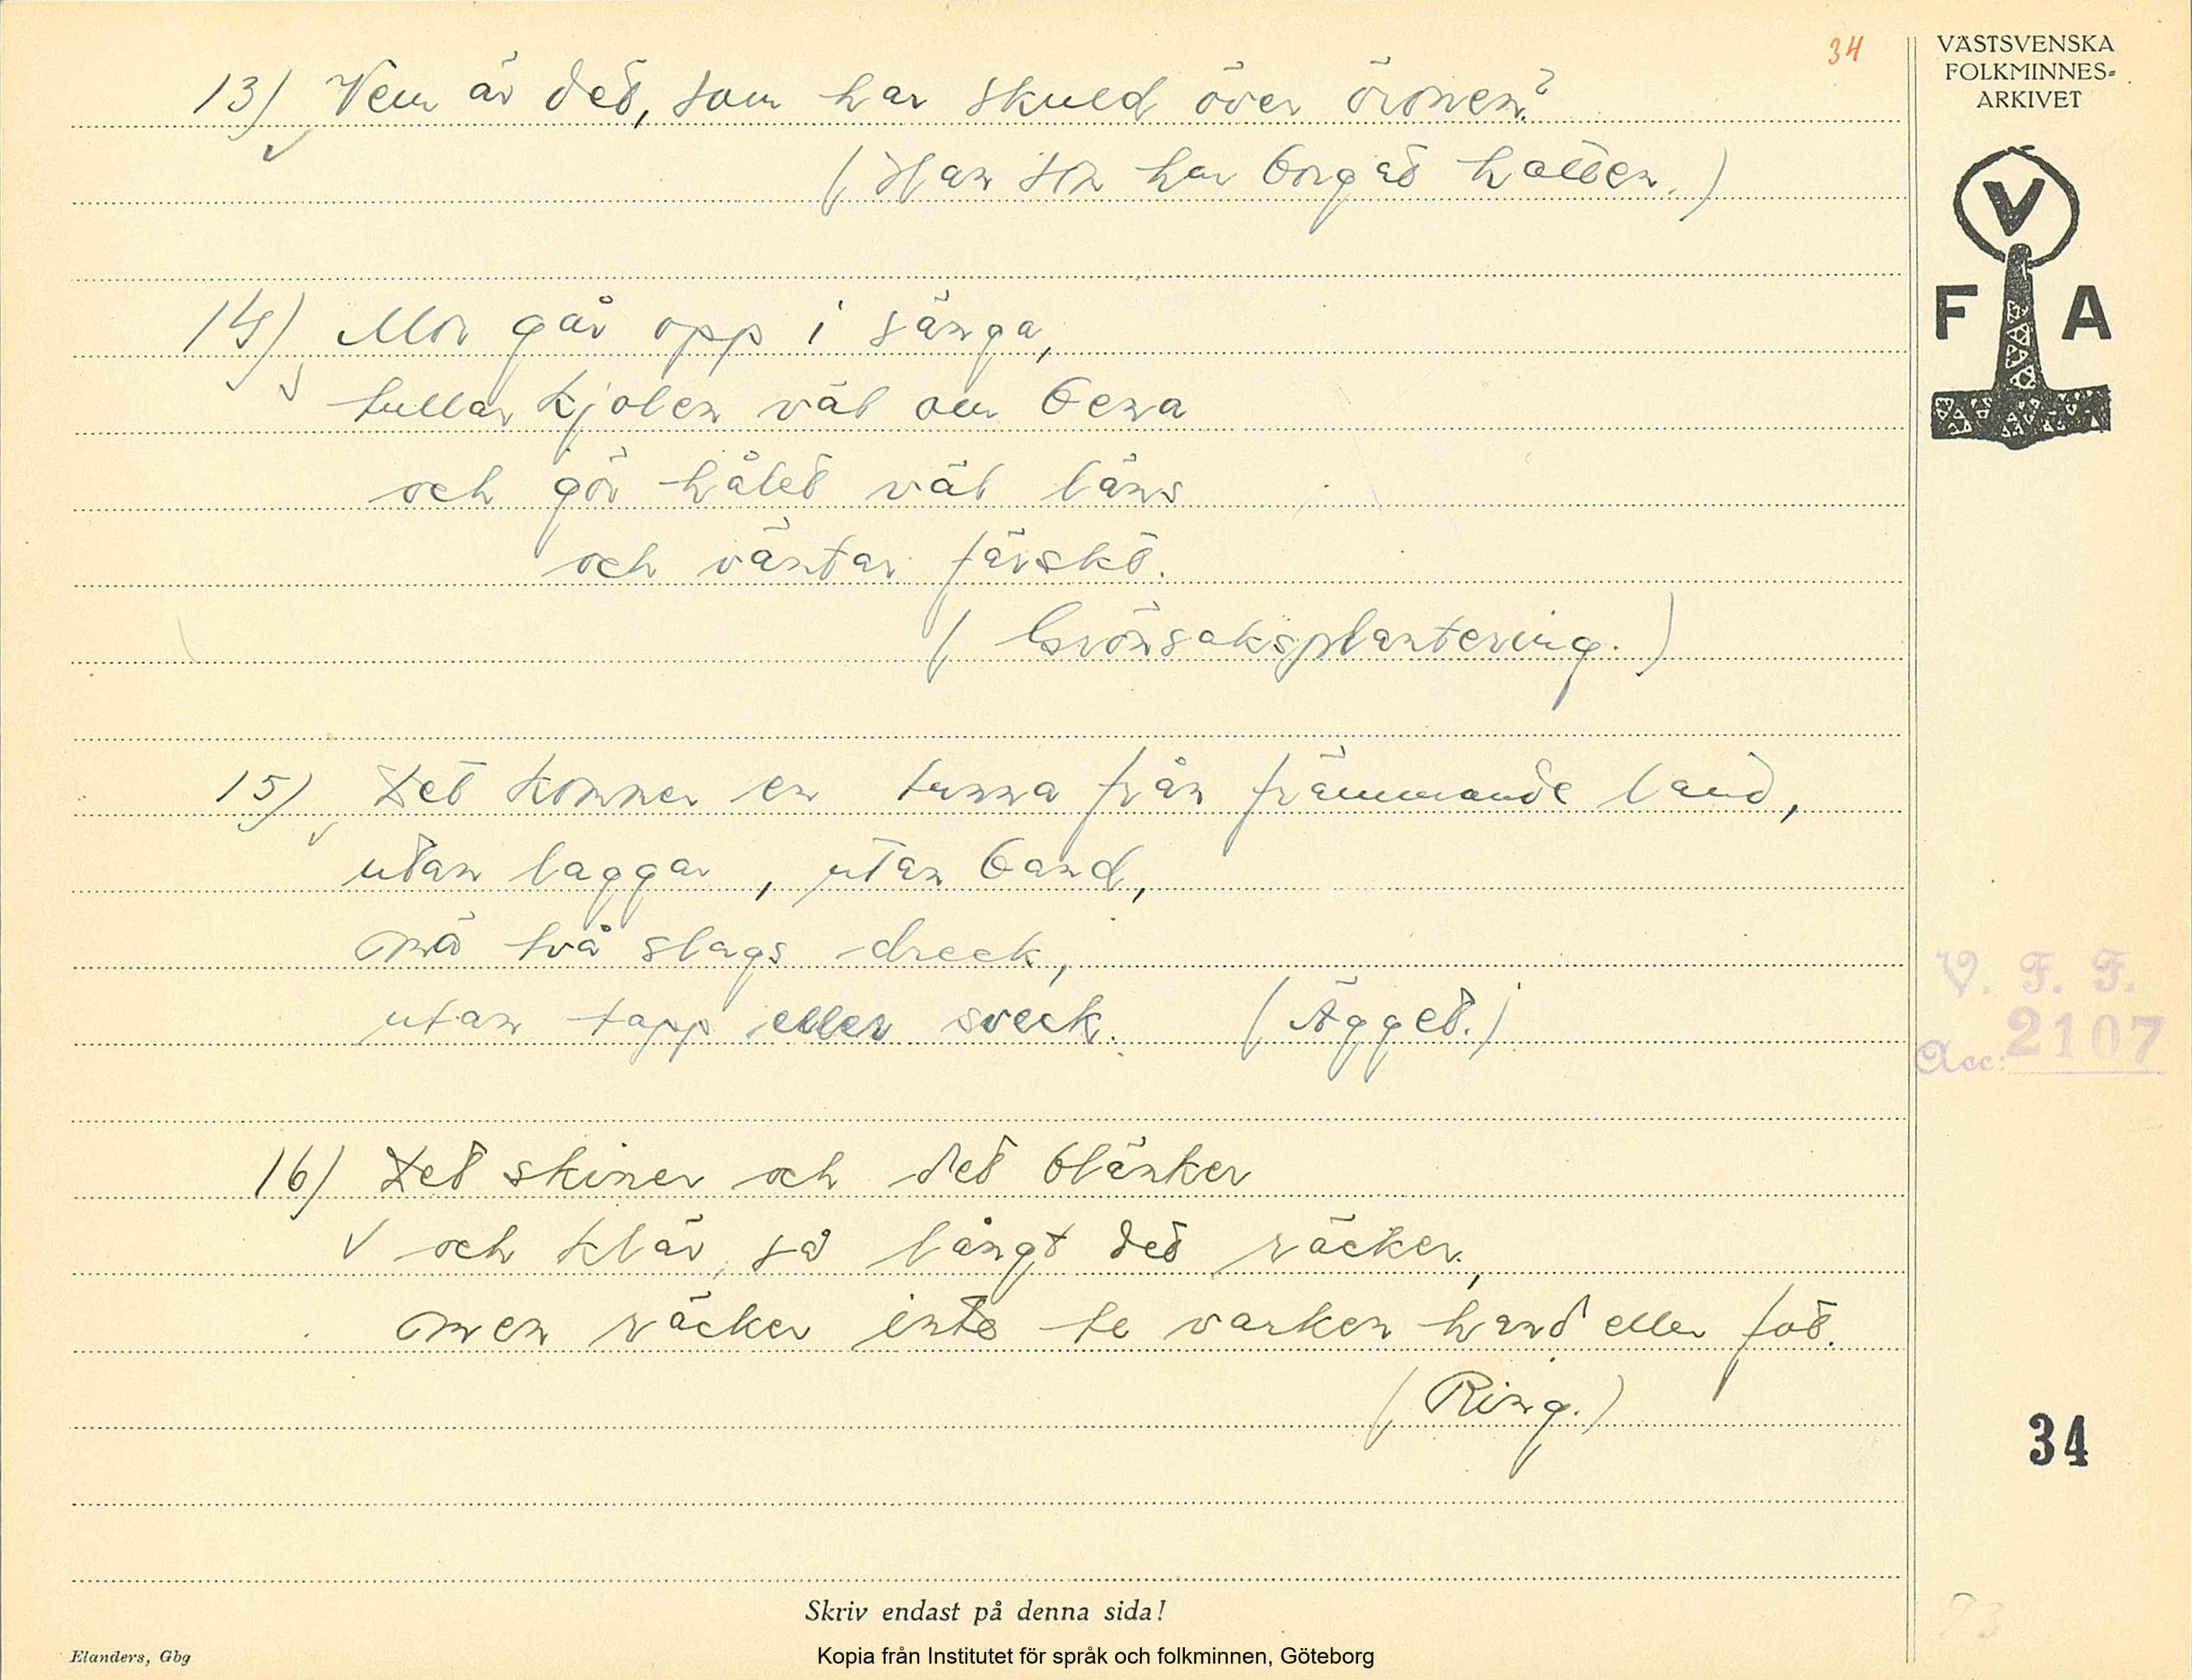 34
13) Vem är det, som har skuld över öronen?
(Han som har borgat hatten.)
14) Mor går opp i sänga,
tullar kjolen väl om bena
och gör hålet väl läns
och väntar färskt.
(Grönsaksplantering.)
15) Det kommer en tunna från främmande land,
utan laggar, utan band,
mä två slags dreck,
utan tapp eller sveck. (Ägget.)
16) Det skiner och det blänker
och klär, så långt det räcker,
men räcker inte te varken hand eller fot.
(Ring.)
VÄSTSVENSKA
FOLKMINNES-
ARKIVET
V
F A
V. F. F.
Acc: 2107
34
93
Skriv endast på denna sida!
Elanders, Gbg
Kopia från Institutet för språk och folkminnen, Göteborg